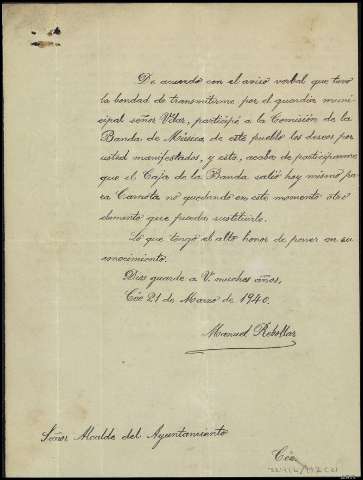 De acuerdo con el aviso verbal que tuvo
la bondad de transmitirme por el guardia muni-
cipal señor Vilar, participé a la Comisión de la
Banda de Música de este pueblo los deseos por
usted manifestados, y esta, acaba de participarme
que el Caja de la Banda salió hoy mismo pa-
ra Carnota no quedando en este momento otro
elemento que pueda sustituirle.
Lo que tengo el alto honor de poner en su
conocimiento.
Dios guarde a V. muchos años,
Cée 21 de Marzo de 1940.
Manuel Rebollar
Señor Alcalde del Ayuntamiento
Cée